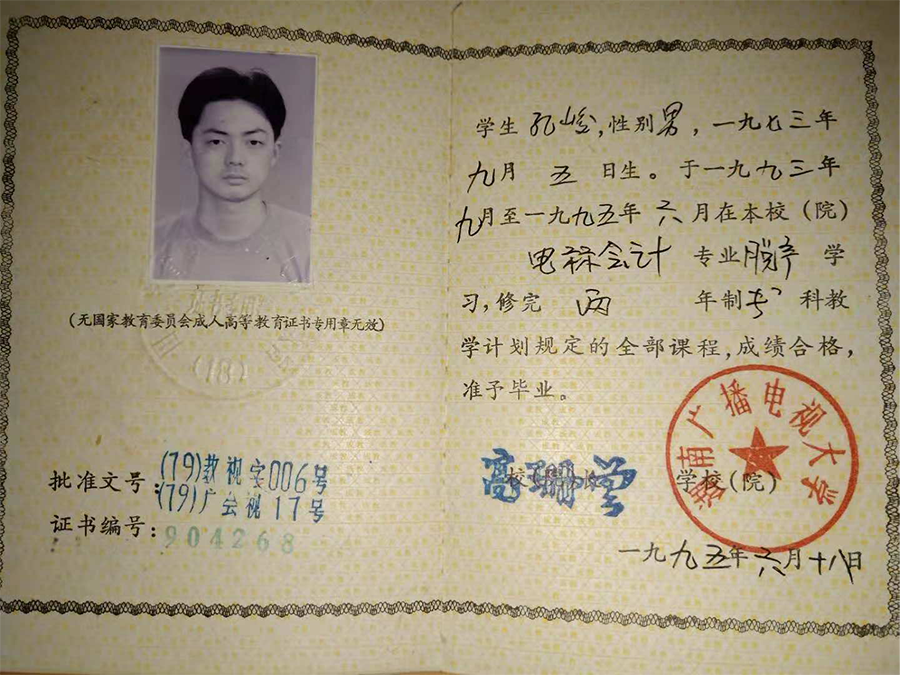 (无国家教育委员会成人高等教育证书专用章无效)
(18)
批准文号:(79)教视字006号
(79)广会视17号
证书编号:904268
学生 孔 ,性别男,一九七三年
九月 五 日生。于一九九三年
九月至一九九五年 六月在本校(院)
电 会计 专业脱产 学
习,修完 两 年制专科教
学计划规定的全部课程,成绩合格,
准予毕业。
校 长 学校(院)
南广播电视大学
一九九五年六月十八日